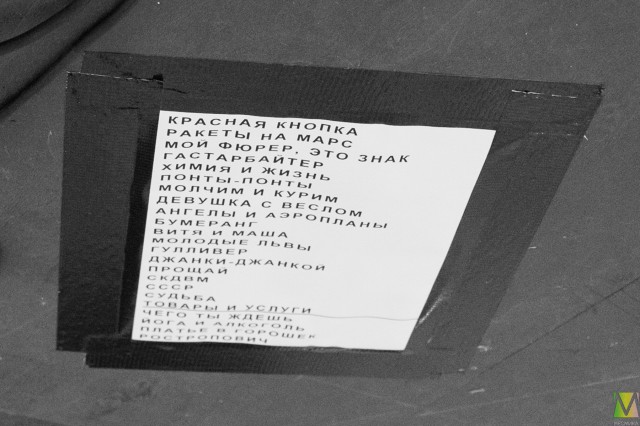 КРАСНАЯ КНОПКА
РАКЕТЫ НА МАРС
МОЙ ФЮРЕР, ЭТО ЗНАК
ГАСТАРБАЙТЕР
ХИМИЯ И ЖИЗНЬ
ПОНТЫ-ПОНТЫ
МОЛЧИМ И КУРИМ
ДЕВУШКА С ВЕСЛОМ
АНГЕЛЫ И АЭРОПЛАНЫ
БУМЕРАНГ
ВИТЯ И МАША
МОЛОДЫЕ ЛЬВЫ
ГУЛЛИВЕР
ДЖАНКИ-ДЖАНКОЙ
ПРОЩАЙ
СКДВМ
СССР
СУДЬБА
ТОВАРЫ И УСЛУГИ
ЧЕГО ТЫ ЖДЕШЬ
ЙОГА И АЛКОГОЛЬ
ПЛАТЬЕ В ГОРОШЕК
РОСТРОПОВИЧ